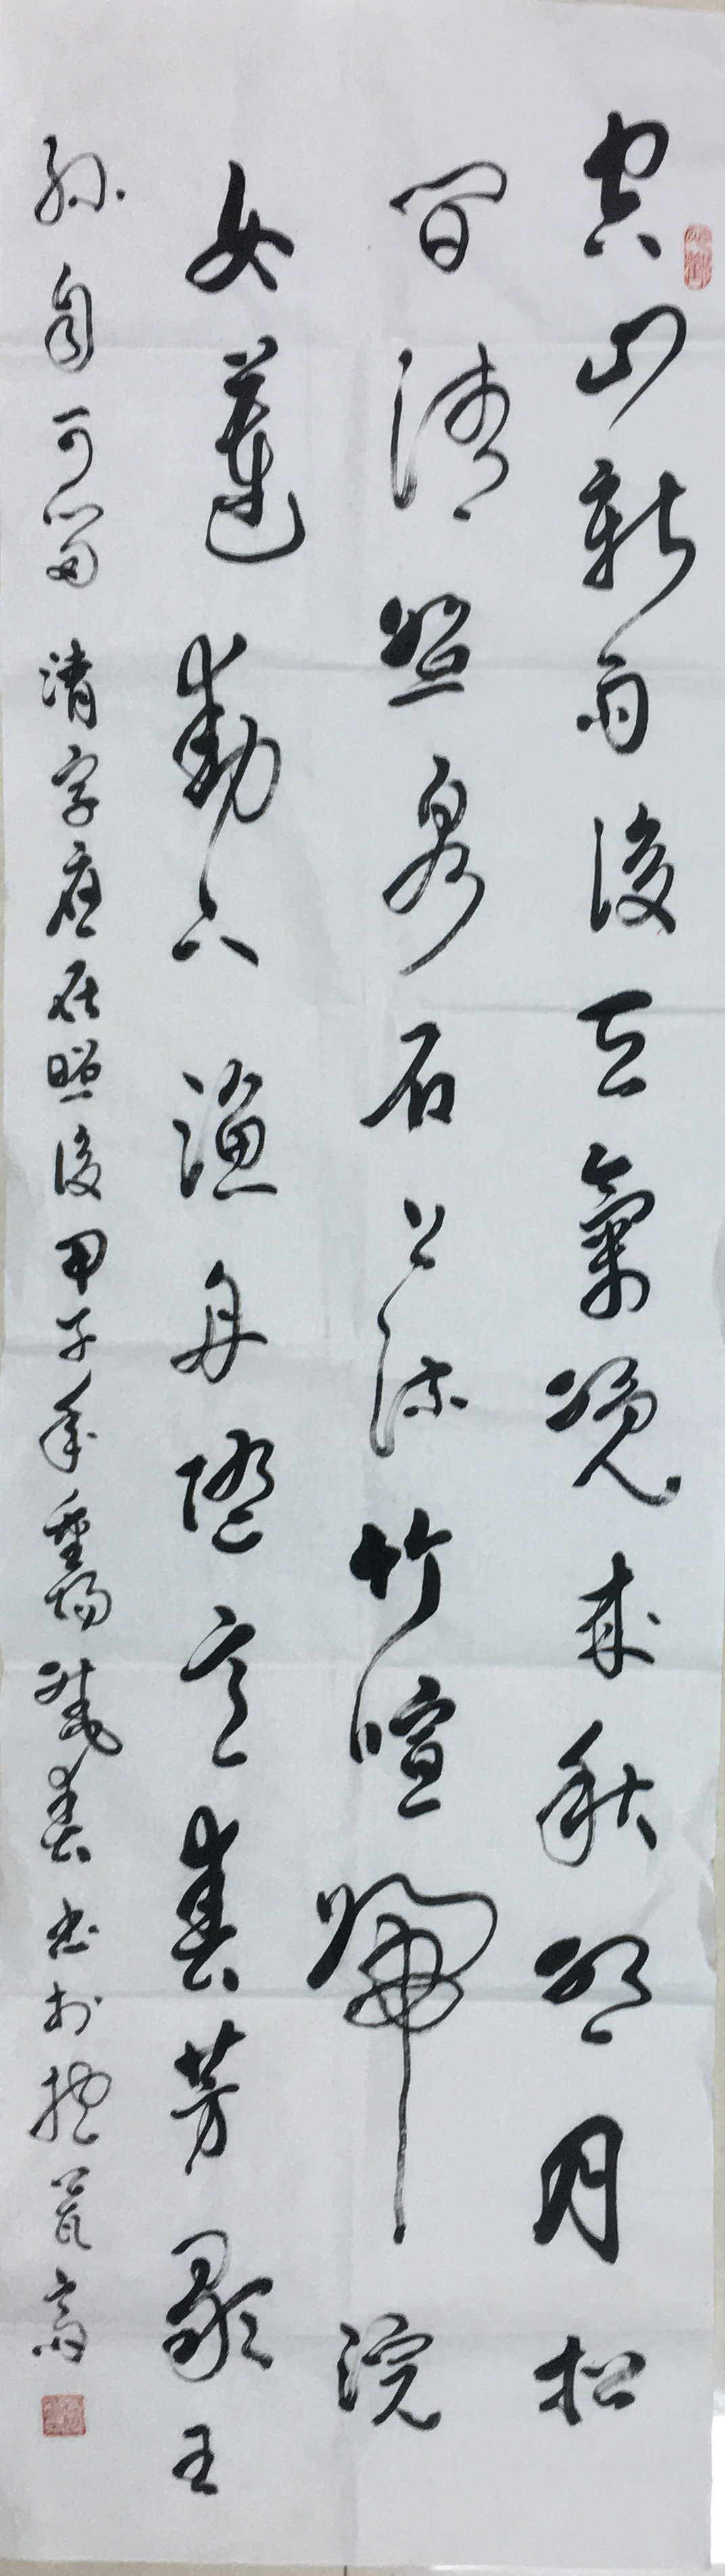 空山新雨後天氣晚来秋明月松
間清照泉石上流竹喧歸浣
女蓮動下漁舟隨意春芳歇王
孫自可留 清字應在照後 甲子年重陽 春书於抱 齋